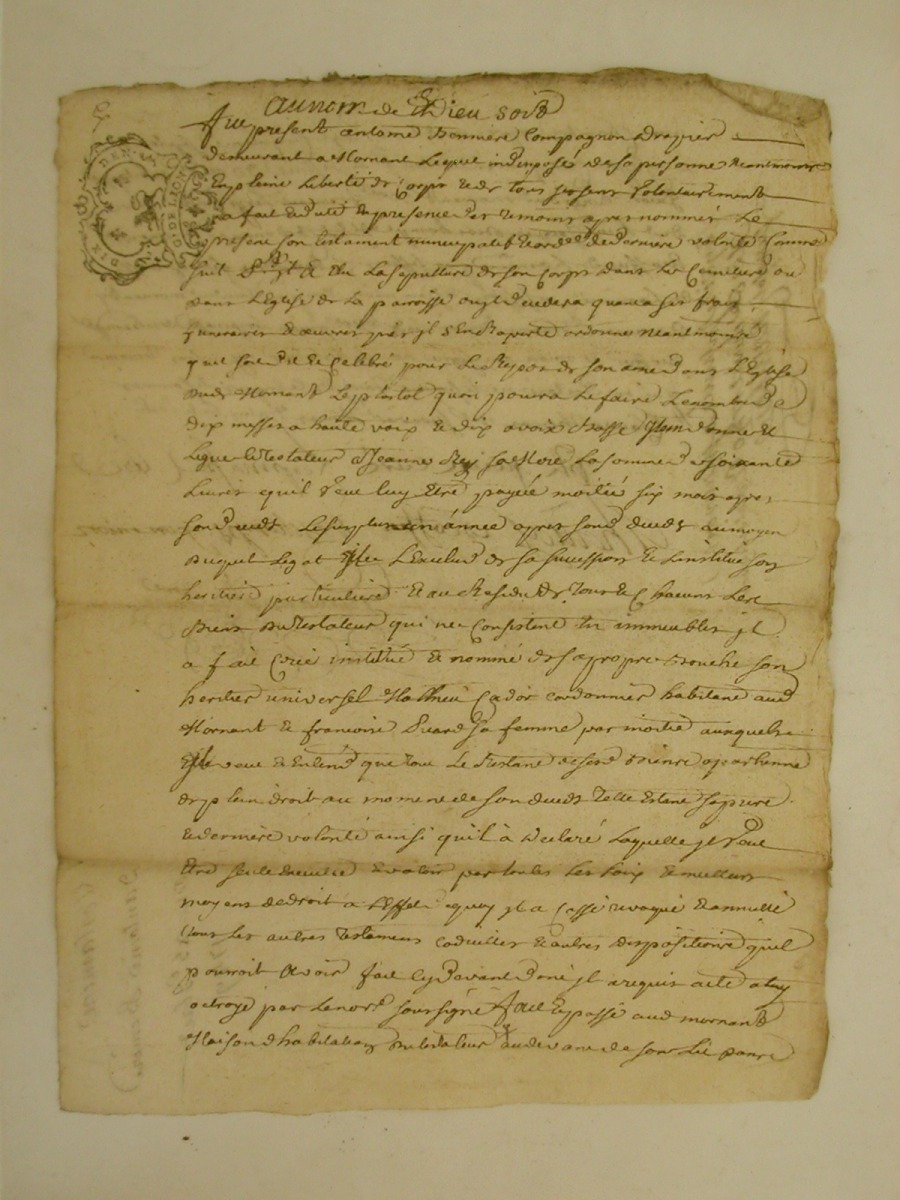 Au nom de Dieu soit
fut present antoine Bonniere Compagnon Drapier
demeurant a Mornant Lequel indispose de sa personne Neantmoins
En pleine Liberté de Corps et de tous ses sens volontairement
a fait et dicté En presence des temoins apres nommés Le
present son testament nuncupatif et ord de derniere volonté Comme
suit La sepulture de son Corps dans Le Cimetiere ou
dans L'Eglise de La parroisse ou quant a ses frais
funeraires et œuvres pies jl s'En Raporte ordonne Neantmoins
qu'il soit dit et Celebré pour Le Repos de son ame dans L'Eglise
dud Mornant Le plustot que pourra Se faire Le nombre de
dix messes a haute voix et dix a voix Basse Jtem donne et
Legue Le testateur a Jeanne Rey sa Mere La somme de soixante
Livres qu'il veut luy Etre payée moitié six mois apres
son deceds Le surplus un année apres son deceds au moyen
duquel Legat il L'Exclud de sa succession et L'institue son
heritiere particuliere Et au Residu de Tous et Chacuns Les
Biens du testateur qui ne Consistent En immeubles jl
a fait Créé institué et nommé de sa propre Bouche son
heritier universel Mathieu Cador cordonnier habitant aud
Mornant et francoise sa femme par moitié auxquels
veut et Entend que tout Le Restant de ses Biens apartienne
de plein droit au moment de son deceds Telle Estant sa pure
et derniere volonté ainsi qu'il a declaré Laquelle jl veut
Etre seule Executée et valoir par toutes Les Loix et meilleurs
moyens de droit a L'Effet de quoy jl a Cassé revoqué et annullé
tous Les autres Testaments codicilles et autres dispositions qu'il
pourroit Avoir fait Cy devant dont jl a requis acte a Luy
octroyé par Le not.re soussigné fait Et passé aud mornant
Maison d'habitation du testateur au devant de son Lit dans